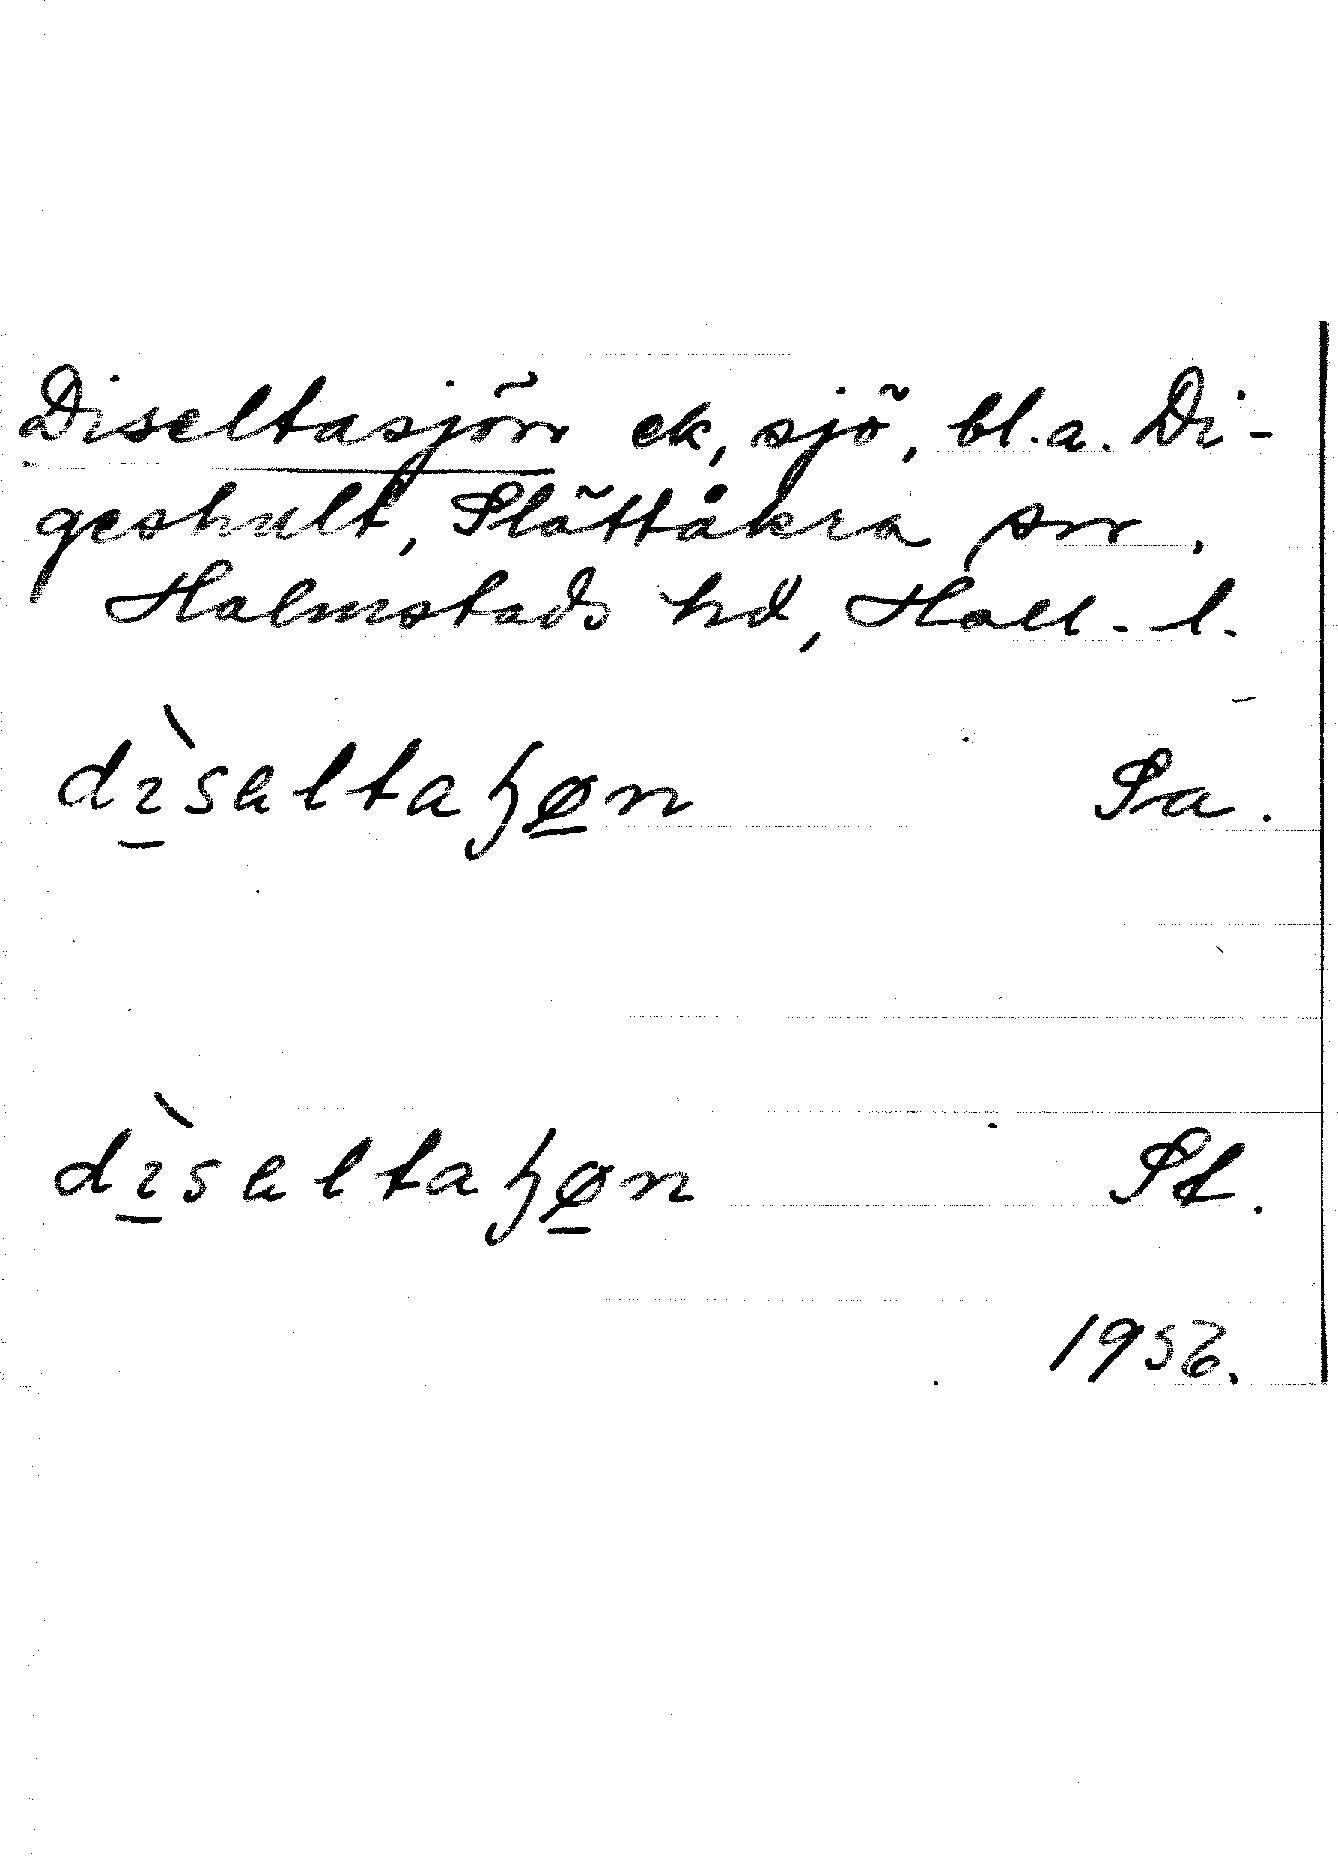 Diseltasjön ek, sjö, bl.a. Di-
geshult, Slättåkra sn.
Halmstads hd, Hall. l.
dı̀sɐltaɧøn Sa.
dı̀sɐltaɧøn St.
1956.